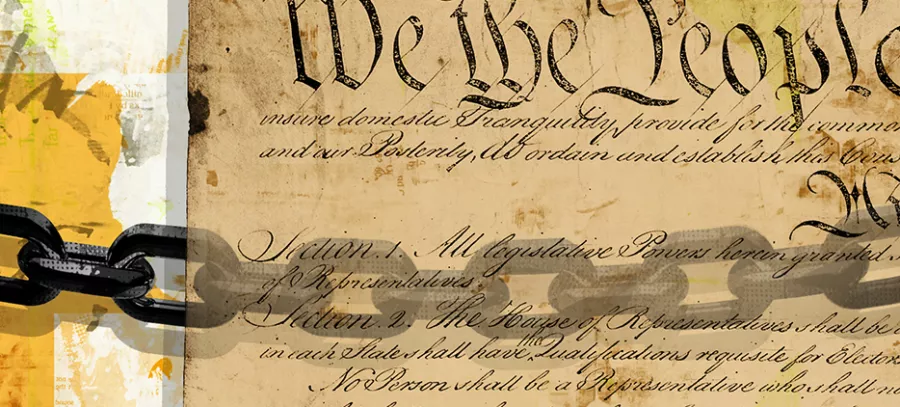 We the People
insure domestic Tranquility, provide for the common
and our Posterity, do ordain and establish this Cons
Section. 1. All legislative Powers herein granted
of Representatives.
Section. 2. The House of Representatives shall be
in each State shall have the Qualifications requisite for Electors
No Person shall be a Representative who shall no